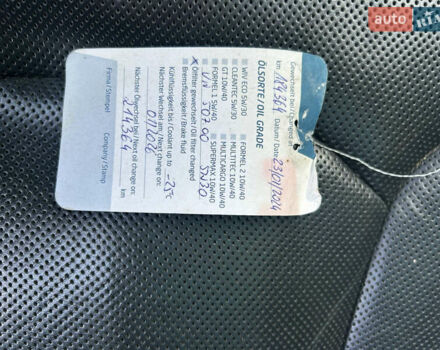 Gewechselt bei / Changed at
km 184364 Datum / Date: 23/01/2024
ÖLSORTE / OIL GRADE
WIV ECO 5W/30
FORMEL 2 10W/40
CLEANTEC 5W/30
MULTITEC 10W/40
GT 10W/40
MULTICARGO 10W/40
FORMEL 1 5W/40
SUPERMAX 10W/40
507 00 5W30
Ölfilter gewechselt / Oil filter changed
Bremsflüssigkeit / Brake fluid
Kühlflüssigkeit bis / Coolant up to -25°C
Nächster Wechsel am / Next change on:
Nächster Ölwechsel bei / Next oil change on:
214364 km
Firma / Stempel Company / Stamp
RIA